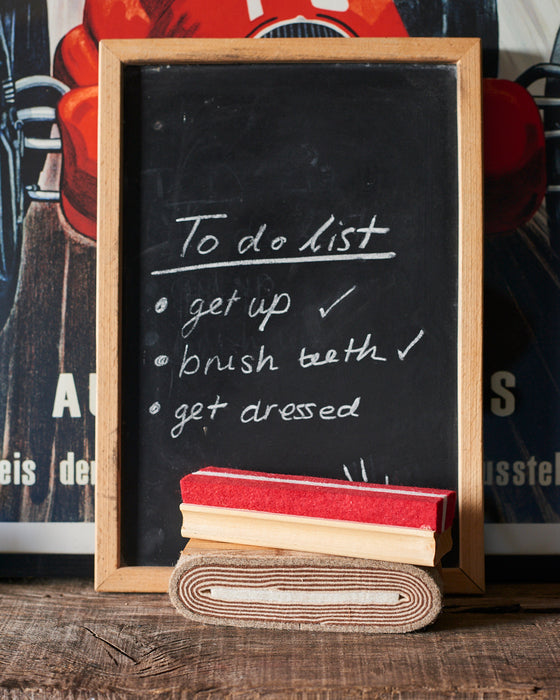 To do list
• get up ✓
• brush teeth ✓
• get dressed
AU S
eis der usstel